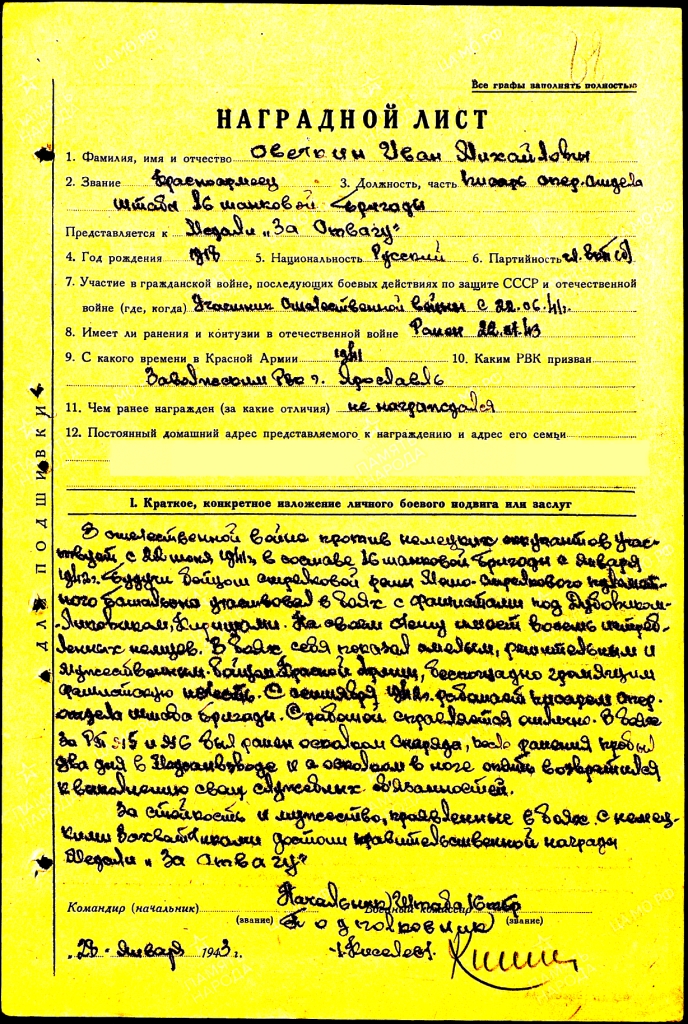 Все графы заполнять полностью
НАГРАДНОЙ ЛИСТ
1. Фамилия, имя и отчество Оветкин Иван Михайлович
2. Звание Красноармеец 3. Должность, часть писарь опер.отдела
штаба 16 танковой бригады
Представляется к Медали „За Отвагу"
4. Год рождения 1918 5. Национальность Русский 6. Партийность
7. Участие в гражданской войне, последующих боевых действиях по защите СССР и отечественной
войне (где, когда) Участник отечественной войны с 22.06.41г.
8. Имеет ли ранения и контузии в отечественной войне Ранен 22.01.43
9. С какого времени в Красной Армии 1941 10. Каким РВК призван
Заволжским Рвк г. Ярославль
11. Чем ранее награжден (за какие отличия) не награждался
12. Постоянный домашний адрес представляемого к награждению и адрес его семьи
ДЛЯ ПОДШИВКИ
I. Краткое, конкретное изложение личного боевого подвига или заслуг
В отечественной войне против немецких оккупантов учас-
твует с 22 июня 1941г, в составе 16 танковой бригады с января
1942г. Будучи бойцом стрелковой роты Мото-стрелкового пулемет-
ного батальона участвовал в боях с фашистами под Дубовиком-
Липовиком, Киришами. На своем счету имеет восемь истреб-
ленных немцев. В боях себя показал смелым, решительным и
мужественным бойцом Красной Армии, беспощадно громящим
фашистскую нечисть. С сентября 1942г. работает писарем опер.
отдела штаба бригады. С работой справляется отлично. В боях
за РП №5 и №6 был ранен осколком снаряда, после ранения пробыл
два дня в Медсанвзводе и с осколком в ноге опять возвратился
к выполнению своих служебных обязанностей.
За стойкость и мужество, проявленные в боях с немец-
кими захватчиками достоин правительственной награды
Медали „За Отвагу"
Начальник Штаба 16 тбр
Командир (начальник) Военный комиссар
(звание) Подполковник (звание)
„28" января 1943 г. /Киселев/